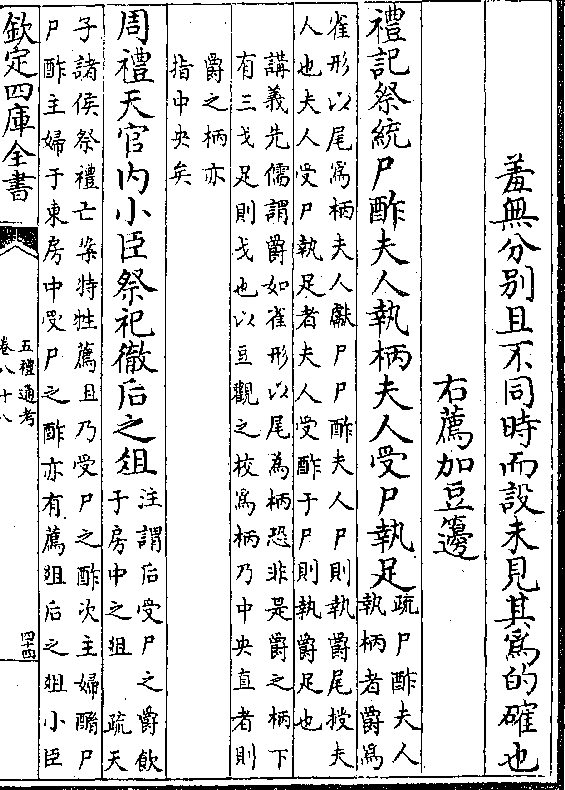 羞無分別且不同時而設未見其爲的確也
右薦加豆籩
禮記祭統尸酢夫人執柄夫人受尸執足
疏尸酢夫人
執柄者爵爲
雀形以尾爲柄夫人獻尸尸酢夫人尸則執爵尾授夫
人也夫人受尸執足者夫人受酢于尸則執爵足也
講義先儒謂爵如雀形以尾爲柄恐非是爵之柄下
有三戈足則戈也以豆觀之校爲柄乃中央直者則
爵之柄亦
指中央矣
周禮天官内小臣祭祀徹后之俎
注謂后受尸之爵飲
于房中之俎 疏天
子諸侯祭禮亡案特牲薦且乃受尸之酢次主婦酳尸
尸酢主婦于東房中受尸之酢亦有薦俎后之俎小臣
欽定四庫全書
五禮通考
卷八十八
四十四